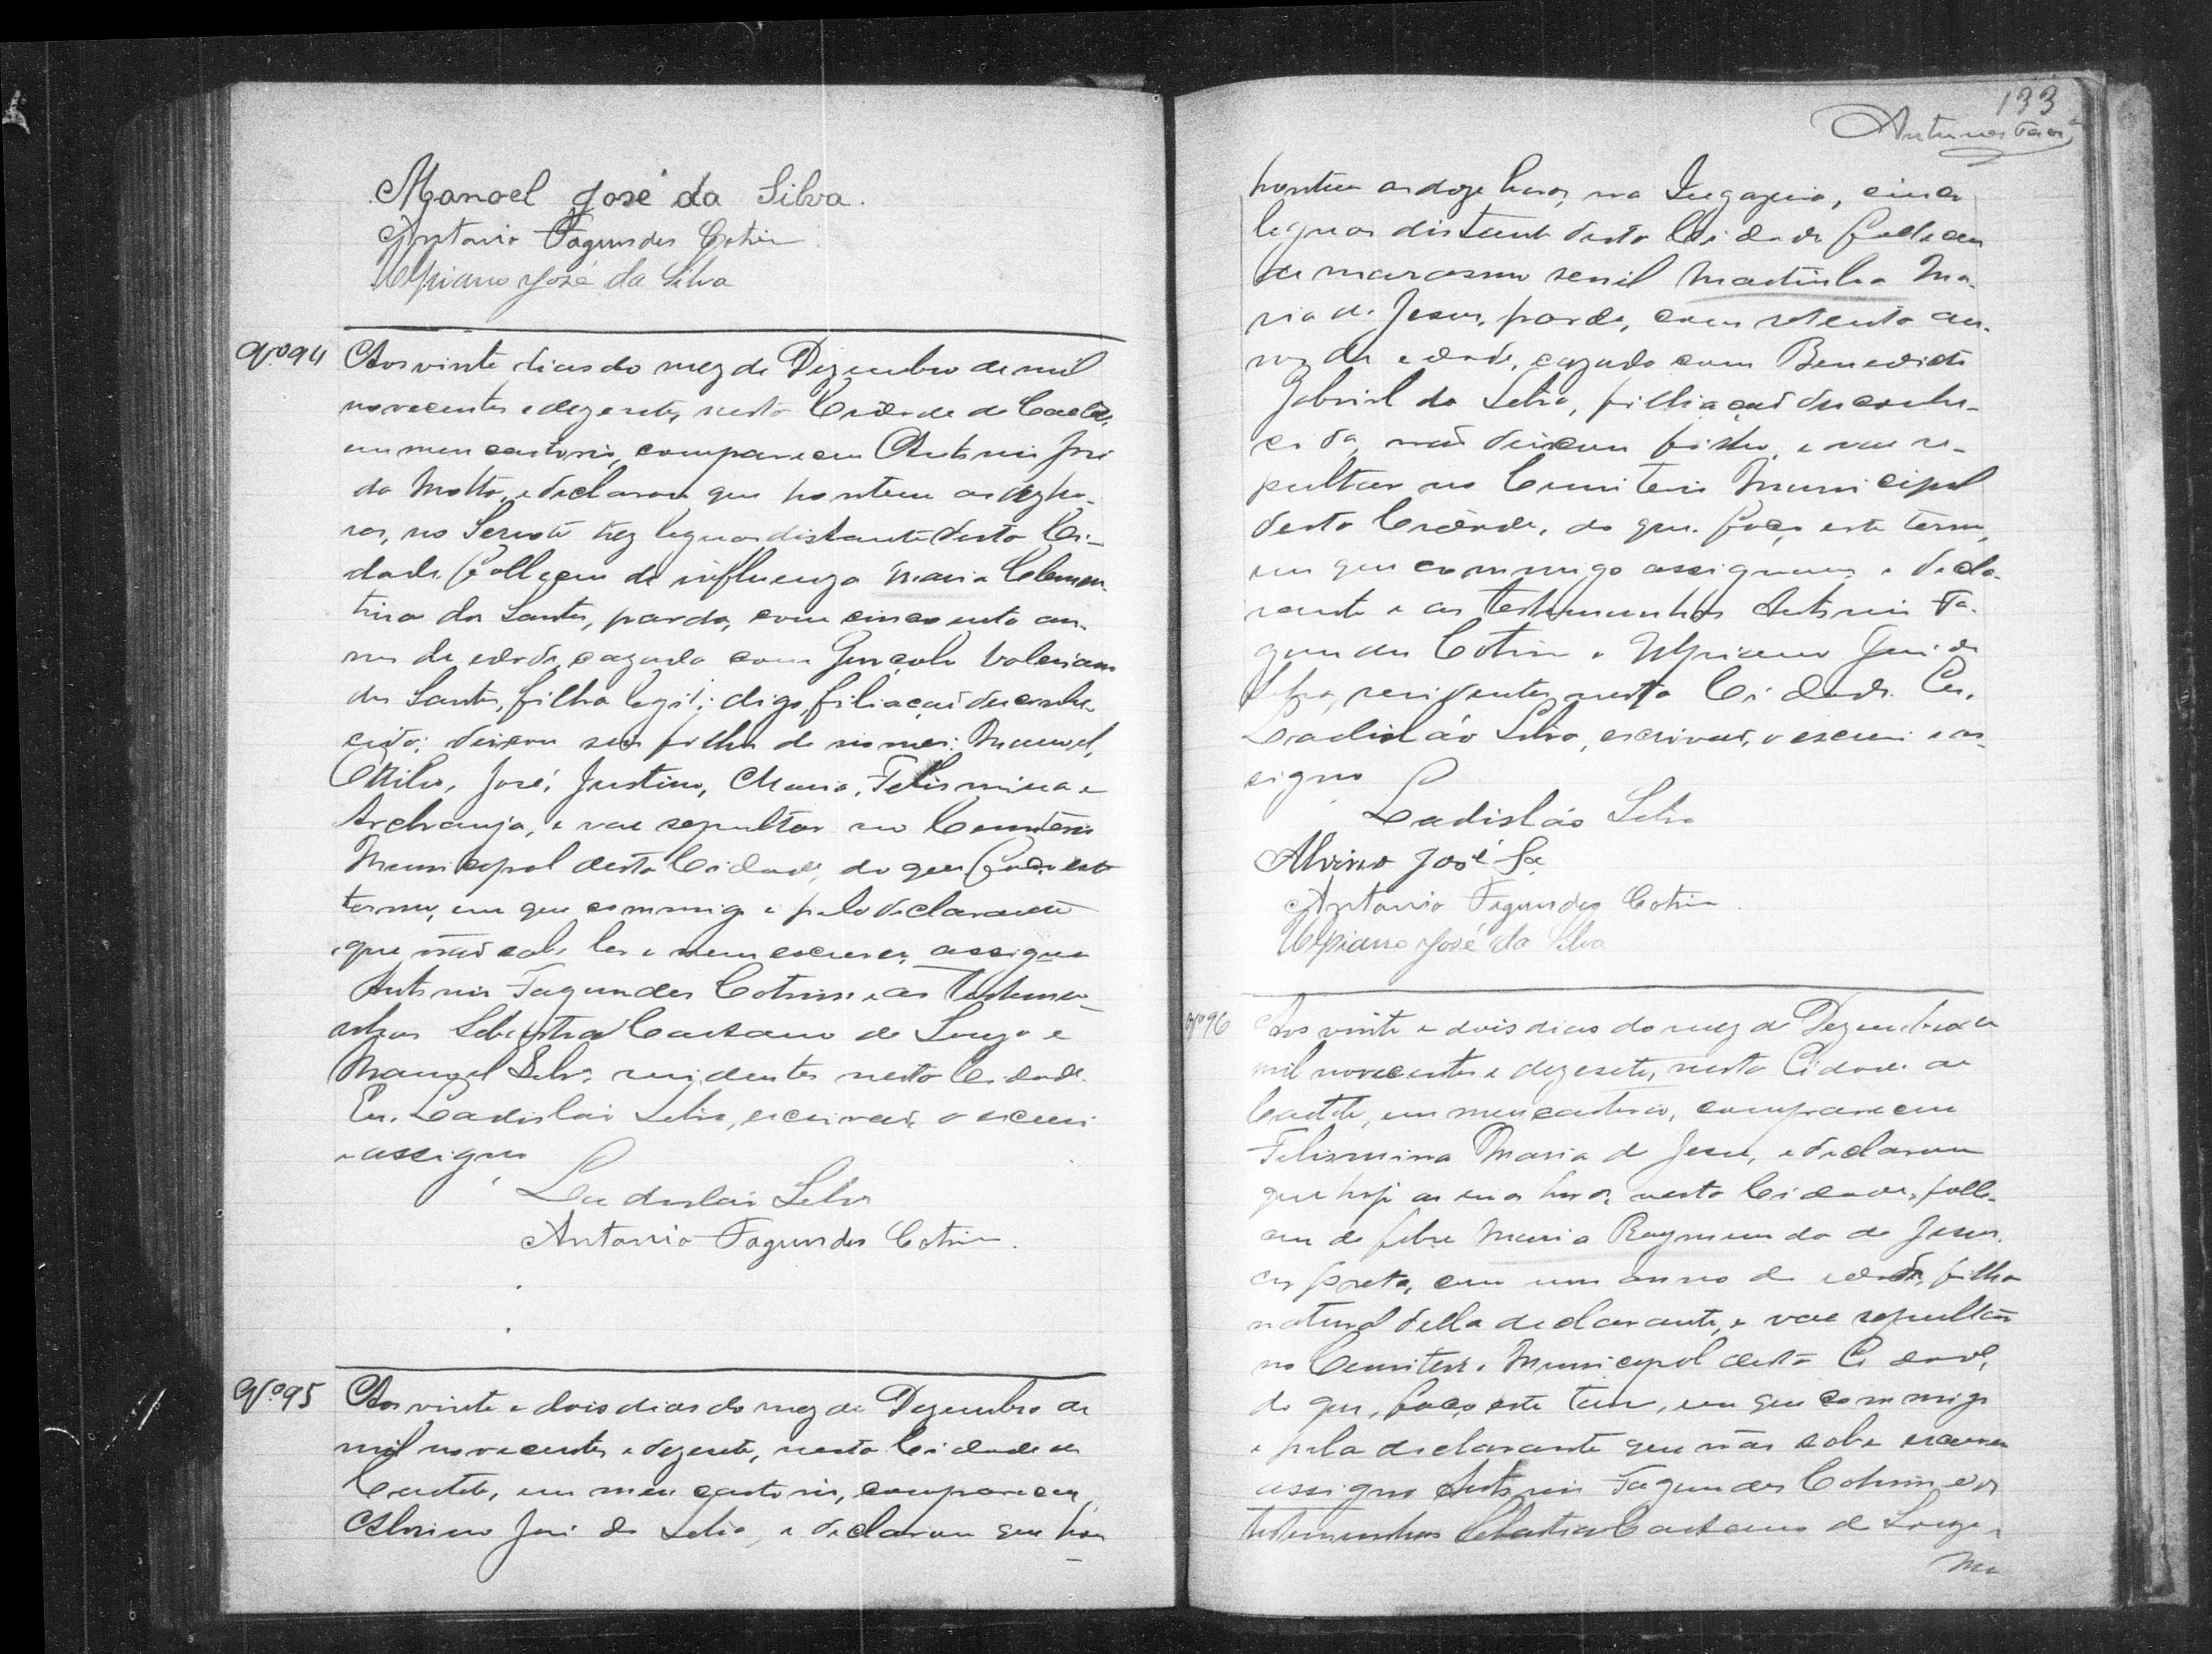 Manoel José da Silva.
Antonio Fagundes Cotrim
Ulpiano José da Silva
Nº 94 Aos vinte dias do mez de Dezembro de mil
novecentos e dezesete, nesta Cidade de Caeteté,
em meu cartorio, compareceu Antonio José
da Motta, e declarou que hontem as dez ho-
ras, no tez leguas distante desta Ci-
dade falleceu de influenza Maria Clemen-
tina dos Santos, parda, com cincoenta an-
nos de edade, cazada com Gonçalo Valeriano
dos Santos, filha legi; digo, filiação desconhe-
cida; deixou seis filhos de nomes: Manoel,
Ottilio, José, Justino, Maria, Felismina e
Archanja, e vae sepultar no Cemiterio
Municipal desta Cidade, do que faço este
termo, em que commigo e pelo declarante
que não sabe ler e nem escrever, assigna
Antonio Fagundes Cotrim e as testemu-
nhas Sebastião Caetano de Souza e
Manoel Silva, residentes nesta Cidade.
Eu, Ladisláo Silva, escrivão, o escrevi
e assigno
Ladisláo Silva
Antonio Fagundes Cotrim.
Nº 95 Aos vinte e dois dias do mez de Dezembro de
mil novecentos e dezesete, nesta Cidade de
Caeteté, em meu cartorio, compareceu
José da Silva, e declarou que hon
133
Antunes
hontem as doze horas, na Ingazeira, cinco
leguas distante desta Cidade falleceu
de marasmo senil Martinha Ma-
ria de Jesus, parda, com setenta an-
nos de edade, cazada com Benedicto
Gabriel da Silva, filiação desconhe-
cida, não deixou filho, e vae se-
pultar no Cemiterio Municipal
desta Cidade, do que faço este termo,
em que commigo assignam o decla-
rante e as testemunhas Antonio Fa-
gundes Cotrim e Ulpiano José da
Silva, residentes nesta Cidade. Eu,
Ladisláo Silva, escrivão, o escrevi e as-
signo
Ladisláo Silva
Alvino José Sa
Antonio Fagundes Cotrim.
Ulpiano José da Silva
Nº 96 Aos vinte e dois dias do mez de Dezembro de
mil novecentos e dezesete, nesta Cidade de
Caeteté, em meu cartorio, compareceu
Felismina Maria de Jesus, e declarou
que hoje as horas, nesta Cidade, falle-
ceu de febre Maria Raymunda de Jesus,
cor preta, com um anno de edade, filha
natural della declarante, e vae sepultar
no Cemiterio Municipal desta Cidade,
do que, faço este termo, em que commigo
e pela declarante que não sabe escrever
assigno Antonio Fagundes Cotrim e as
testemunhas Sebastião Caetano de Souza e
Ma